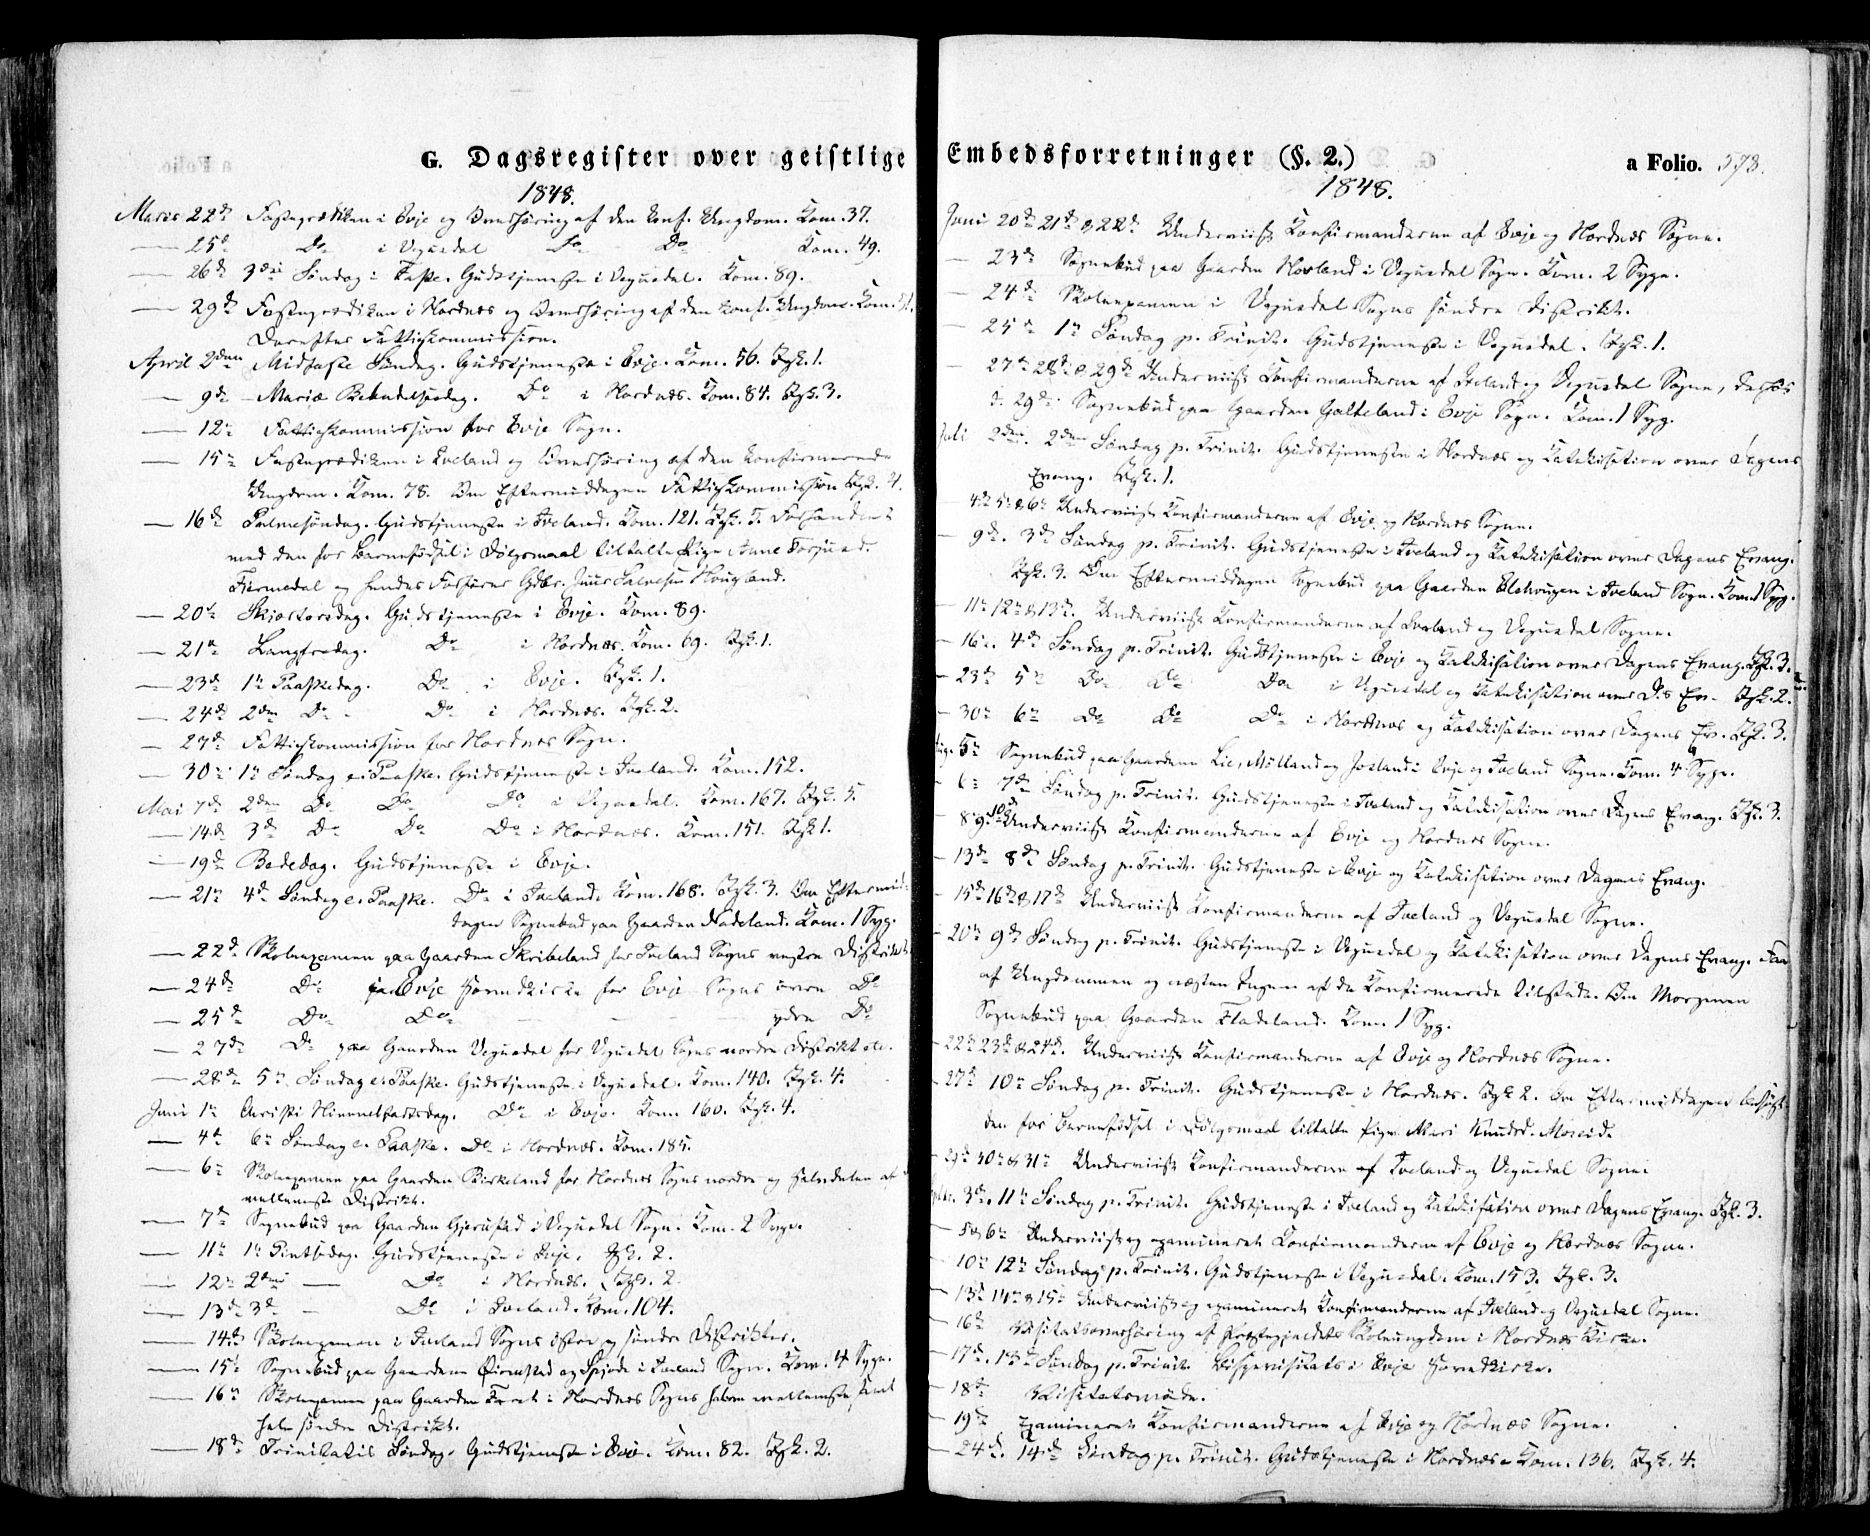 G. Dagsregister over geistlige
1848.
Marts 22de Fasteprædiken i Evje og Overhøring af den konf. Ungdom. Kom. 37.
— 25de Do i Vegusdal Do Do Kom. 49.
— 26de 3die Søndag i Faste. Gudstjeneste i Vegusdal. Kom. 89.
— 29de Fasteprædiken i Hordnes og Overhøring af den konf. Ungdom. Kom.
Derefter Fattigkommission.
April 2den Midfaste Søndag. Gudstjeneste i Evje. Kom. 56. Dżb. 1.
— 9de Mariæ Bebudelsesdag. Do i Hordnes. Kom. 84. 3.
— 12te Fattigkommission for Evje Sogn.
— 15de Fasteprædiken i Iveland og Overhøring af den konfirmerede
Ungdom. Kom. 78. Om Eftermiddagen Fattigkommission
— 16de Palmesøndag. Gudstjeneste i Iveland. Kom. 121. 5. Forhandlet
med den for Barnefødsel i Dølgsmaal tiltalte Pige Anne
og hendes Jens Salvesen Hougland.
— 20de Skjærtorsdag. Gudstjeneste i Evje. Kom. 89.
— 21de Langfredag. Do i Hordnes. Kom. 69. 1.
— 23de 1ste Paaskedag. Do i Evje. 1.
— 24de 2den Do Do i Hordnes. 2.
— 27de Fattigkommission for Hordnes Sogn.
— 30te 1ste Søndag e. Paaske. Gudstjeneste i Iveland. Kom. 152.
Mai 7de 2den Do Do Do i Vegusdal. Kom. 167. 5.
— 14de 3die Do Do Do i Hordnes. Kom. 151. 1.
— 19de Bededag. Gudstjeneste i Evje.
— 21de 4de Søndag e. Paaske. Do i Iveland. Kom. 168. 3. Om Eftermid-
dagen Sognebud paa Gaarden Fladeland. Kom. 1 Syg.
— 22de Skoleexamen paa Gaarden Skribeland for Iveland Sogns vestre Distrikt
— 24de Do paa Evje for Evje Sogns øvre Do
— 25de Do Do — — — ydre Do
— 27de Do paa Gaarden Veguedal for Veguedal Sogns nordre Distrikt
— 28de 5te Søndag e. Paaske. Gudstjeneste i Veguedal. Kom. 140. 4.
Juni 1ste Christi Himmelfartsdag. Do i Evje. Kom. 160. 4.
— 4de 6te Søndag e. Paaske. Do i Hordnes. Kom. 185.
— 6te Skoleexamen paa Gaarden Birkeland for Hordnes Sogns nordre og Halvdelen af
mellemste Distrikt.
— 7de Sognebud paa Gaarden i Veguedal Sogn. Kom. 2 Syge.
— 11te 1ste Pintsedag. Gudstjeneste i Evje. 2.
— 12te 2den — Do i Hordnes. 2.
— 13de 3die — Do i Iveland. Kom. 104.
— 14de Skoleexamen i Iveland Sogns østre og søndre Distrikter.
— 15de Sognebud paa Gaardene og i Iveland Sogn. Kom. 4 Syge.
— 16de Skoleexamen paa Gaarden i Hordnes Sogns halve mellemste, samt
hele søndre Distrikt.
— 18de Trinitatis Søndag. Gudstjeneste i Evje. Kom. 82. 2.
Embedsforretninger (§. 2.)
a Folio. 378.
1848.
Juni 20de 21de & 22de Underviist Konfirmanderne af Evje og Hordnes Sogne.
— 23de Sognebud paa Gaarden Hovland i Veguedal Sogn. Kom. 2 Syge.
— 24de Skoleexamen i Veguedal Sogns søndre Distrikt.
— 25de 1ste Søndag p. Trinit. Gudstjeneste i Veguedal. 1.
— 27de 28de & 29de Underviist Konfirmanderne af Iveland og Veguedal Sogne,
d. 29de Sognebud paa Gaarden Galteland i Evje Sogn. Kom. 1 Syg.
Juli 2den. 2den Søndag p. Trinit. Gudstjeneste i Hordnes og Katekisation over Dagens
Evang. 1.
4de 5te & 6te Underviist Konfirmanderne af Evje og Hordnes Sogne.
— 9de. 3die Søndag p. Trinit. Gudstjeneste i Iveland og Katekisation over Dagens Evang.
3. Om Eftermiddagen Sognebud paa Gaarden i Iveland Sogn. Kom. 1 Syg.
— 11te 12te & 13de. Underviist Konfirmanderne af Iveland og Veguedal Sogne.
— 16de. 4de Søndag p. Trinit. Gudstjeneste i Evje og Katekisation over Dagens Evang. 3.
— 23de 5te Do Do Do i Veguedal og Katekisation over D.s Ev. 2.
— 30te 6te Do Do Do i Hordnes og Katekisation over Dagens Ev. 3.
Aug. 5te Sognebud paa Gaardene Lie, Mølland og i Evje og Iveland Sogne. Kom. 4 Syge.
— 6te 7de Søndag p. Trinit. Gudstjeneste i Iveland og Katekisation over Dagens Evang. 3.
— 8. 9. 10de Underviist Konfirmanderne af Evje og Hordnes Sogne.
— 13de 8de Søndag p. Trinit. Gudstjeneste i Evje og Katekisation over Dagens Evang.
— 15de 16de & 17de Underviist Konfirmanderne af Iveland og Veguedal Sogne.
— 20de 9de Søndag p. Trinit. Gudstjeneste i Veguedal og Katekisation over Dagens Evang. Faa
af Ungdommen og næsten Ingen af de Konfirmerede tilstede. Om Morgenen
Sognebud paa Gaarden Fladeland. Kom. 1 Syg.
— 22de 23de & 24de. Underviist Konfirmanderne af Evje og Hordnes Sogne.
— 27de 10de Søndag p. Trinit. Gudstjeneste i Hordnes. 2. Om Eftermiddagen besøgt
den for Barnefødsel i Dølgsmaal tiltalte Pige Mari Knudsd.
— 29de 30te & 31te Underviist Konfirmanderne af Iveland og Veguedal Sogne.
3die. 11te Søndag p. Trinit. Gudstjeneste i Iveland og Katekisation over Dagens Evang. 3.
— 5 & 6te Underviist og examineret Konfirmanderne af Evje og Hordnes Sogne.
— 10de 12te Søndag p. Trinit. Gudstjeneste i Veguedal. Kom. 153. 3.
— 13de 14de & 15de Underviist og examineret Konfirmanderne af Iveland og Veguedal Sogne.
— 16de Visitatsoverhøring af Præstegjeldets Skoleungdom i Hordnes Kirke.
— 17de. 13de Søndag p. Trinit. Bispevisitats i Evje Hovedkirke.
— 18de Visitatsmøde.
— 19de Examineret Konfirmanderne af Evje og Hordnes Sogne.
— 24de. 14de Søndag p. Trinit. Gudstjeneste i Hordnes. Kom. 136. 4.